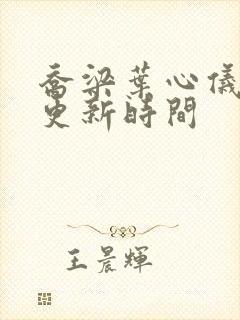 喬梁葉心儀
更新時間
王晨輝